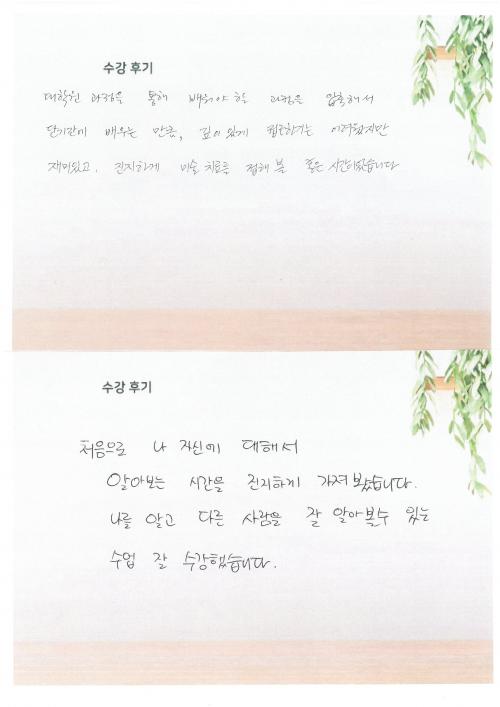 수강 후기
대학원 과정을 통해 배워야 할 과정을 압축해서
단기간에 배우는 만큼, 깊이 있게 탐구하기는 어려웠지만
재미있고, 진지하게 미술 치료를 접해 본 좋은 시간이었습니다
수강 후기
처음으로 나 자신에 대해서
알아보는 시간을 진지하게 가져봤습니다.
나를 알고 다른 사람을 잘 알아볼수 있는
수업 잘 수강했습니다.